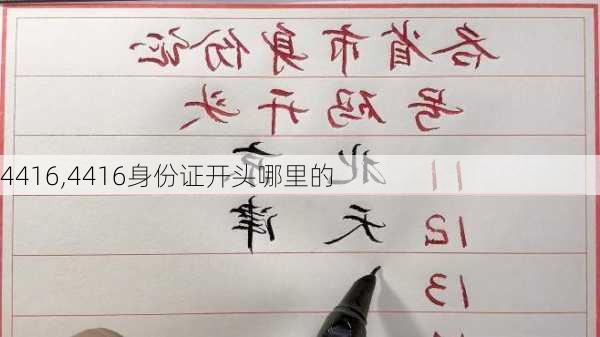 各省市身份证
号码开头
11 北京
4416,4416身份证开头哪里的
12 天津
13